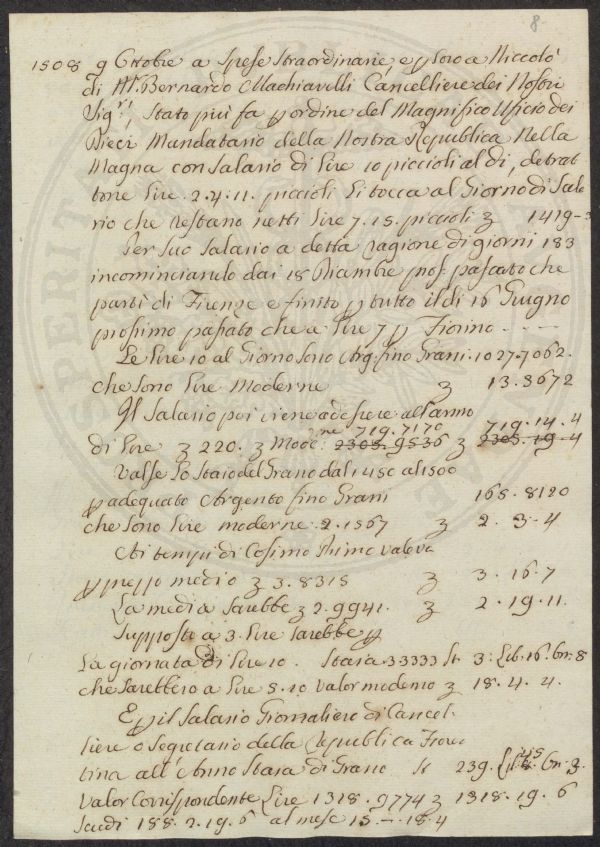 8.
1508 9 Ottobre a Spese Straordinarie, e p loro a Niccolò
di Mr. Bernardo Machiavelli Cancelliere dei Nostri
Sigri, Stato più fa p ordine del Magnifico Uficio dei
Dieci Mandatario della Nostra Republica Nella
Magna con Salario di Lire 10 piccioli al dì, detrat
tone Lire 2.4.11. piccioli li tocca al Giorno di Sala
rio che restano netti Lire 7.15. piccioli 1419-3
Per Suo Salario a detta ragione di giorni 183
incominciando dai 18 Dicembre pros. passato che
partì di Firenze e finito p tutto il dì 16 Giugno
prossimo passato che a Lire 7 p Fiorino - - - -
Le Lire 10 al Giorno Sono Arg. fino Grani. 1027.7062.
che Sono Lire Moderne 13.3672
Il Salario poi viene ad essere all'anno
ne 719.7170 719.14.4
di Lire 220. Mode: 2303.9536 2303.19.4
Valse lo Staio del Grano dal 1450 al 1500
p adequato Argento fino Grani 168.8120
che Sono Lire moderne 2.1567 2.3.4
Ai tempi di Cosimo Primo valeva
p prezzo medio 3.8315 3.16.7
La media Sarebbe 2.9941. 2.19.11.
Supposto a 3. Lire Sarebbe p
La giornata di Lire 10. Staia 3.3333 St. 3. Lib. 16. On: 8
che Sarebbero a Lire 5.10 valor moderno 18.4.4.
E p il Salario Giornaliero di Cancel-
liere o Segretario della Republica Fioren
tina all'Anno Staia di Grano St 239. Lib. On. 3.
Valor Corrispondente Lire 1318.9774 1318.19.6
Scudi 188.2.19.6 al mese 15.-.18.4